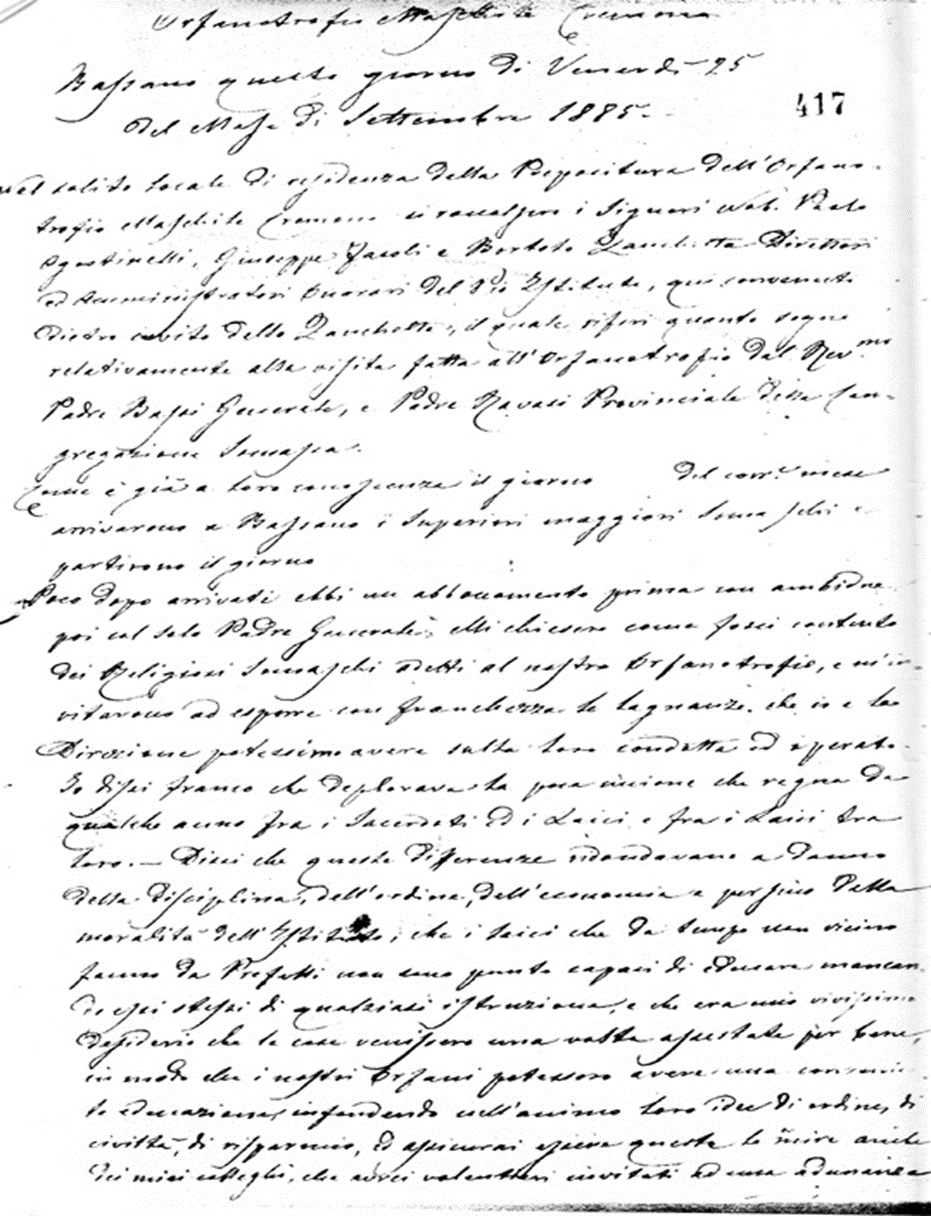 Orfanotrofio Maschile Cremona
Bassano questo giorno di Venerdì 25
del Mese di Settembre 1885.
417
Nel solito locale di residenza della Prepositura dell'Orfano-
trofio Maschile Cremona si raccolsero i Signori Nob. Paolo
Agostinelli, Giuseppe Jacoli e Bortolo Zanchetta Direttori
ed Amministratori Onorari del Pio Istituto, qui convenuti
dietro invito dello Zanchetta, il quale riferì quanto segue
relativamente alla visita fatta all'Orfanotrofio dal Rev.mo
Padre Bassi Generale, e Padre Ravasi Provinciale della Con-
gregazione Somasca.
Come è già a loro conoscenza il giorno del corr.e mese
arrivarono a Bassano i Superiori maggiori Somaschi e
partirono il giorno
Poco dopo arrivati ebbi un abboccamento prima con ambidue
poi col solo Padre Generale. Mi chiesero come fossi contento
dei Religiosi Somaschi addetti al nostro Orfanotrofio, e m'in-
vitarono ad esporre con franchezza le lagnanze che io e la
Direzione potessimo avere sulla loro condotta ed operato.
Io dissi franco che deplorava la poca unione che regna da
qualche anno fra i Sacerdoti ed i Laici e fra i Laici tra
loro. — Dissi che queste differenze ridondavano a danno
della disciplina, dell'ordine, dell'economia e persino della
moralità dell'Istituto, che i laici che da tempo non vicino
fanno da Prefetti non sono punto capaci di educare mancan-
do essi stessi di qualsiasi istruzione, e che era mio vivissimo
desiderio che le cose venissero una volta assestate per bene,
in modo che i nostri Orfani potessero avere una
te educazione, infondendo nell'animo loro idee di ordine, di
civiltà, di risparmio, ed assicurai essere queste le mire anche
dei miei colleghi, che avrei volentieri invitati ad una adunanza